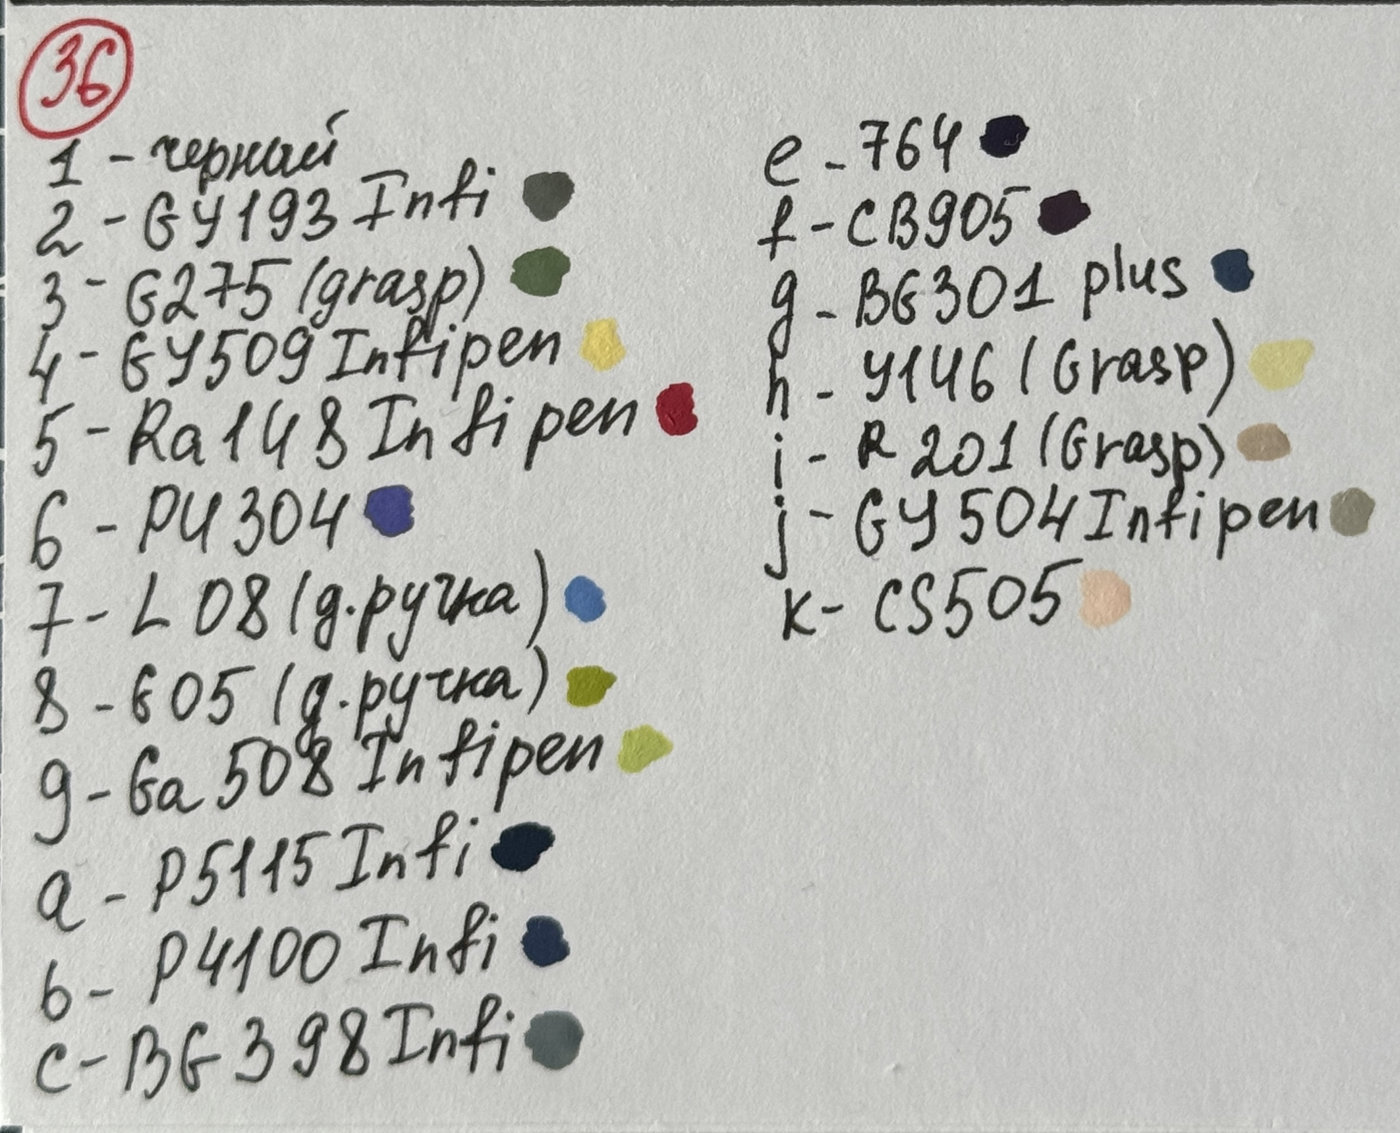 36
1 - черный
2 - GY193 Infi
3 - G275 (grasp)
4 - GY509 Infipen
5 - Ra148 Infipen
6 - PU304
7 - L08 (g.ручка)
8 - G05 (g.ручка)
9 - Ga508 Infipen
a - P5115 Infi
b - P4100 Infi
c - BG398 Infi
e - 764
f - CB905
g - BG301 plus
h - Y146 (Grasp)
i - R201 (Grasp)
j - GY504 Infipen
k - CS505